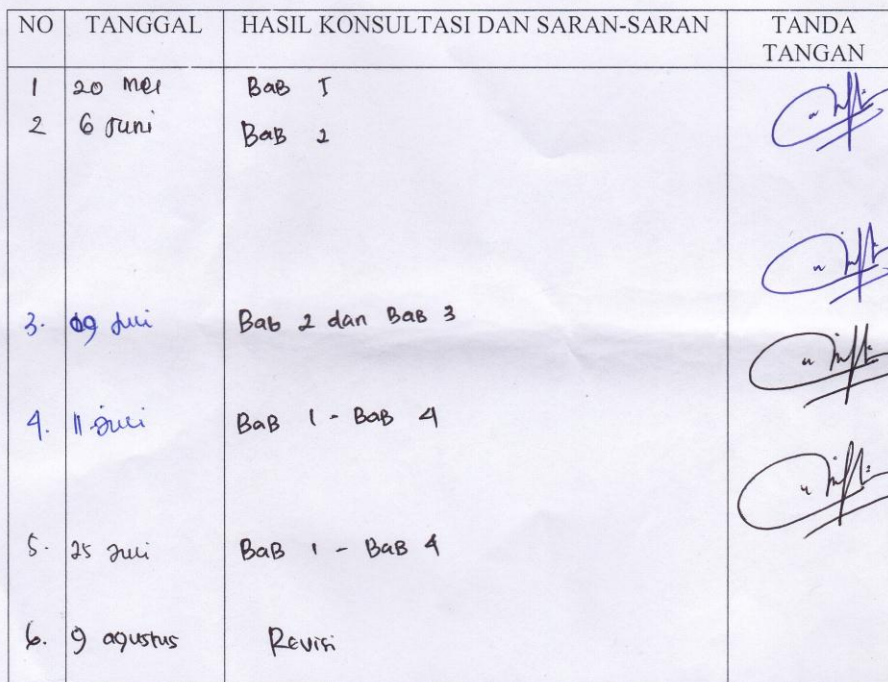 NO TANGGAL HASIL KONSULTASI DAN SARAN-SARAN TANDA TANGAN
1 20 Mei BaB I
2 6 Juni BaB 2
3. 09 Juli Bab 2 dan BaB 3
4. 11 Juli BaB 1 - BaB 4
5. 25 Juli BaB 1 - BaB 4
6. 9 agustus Revisi